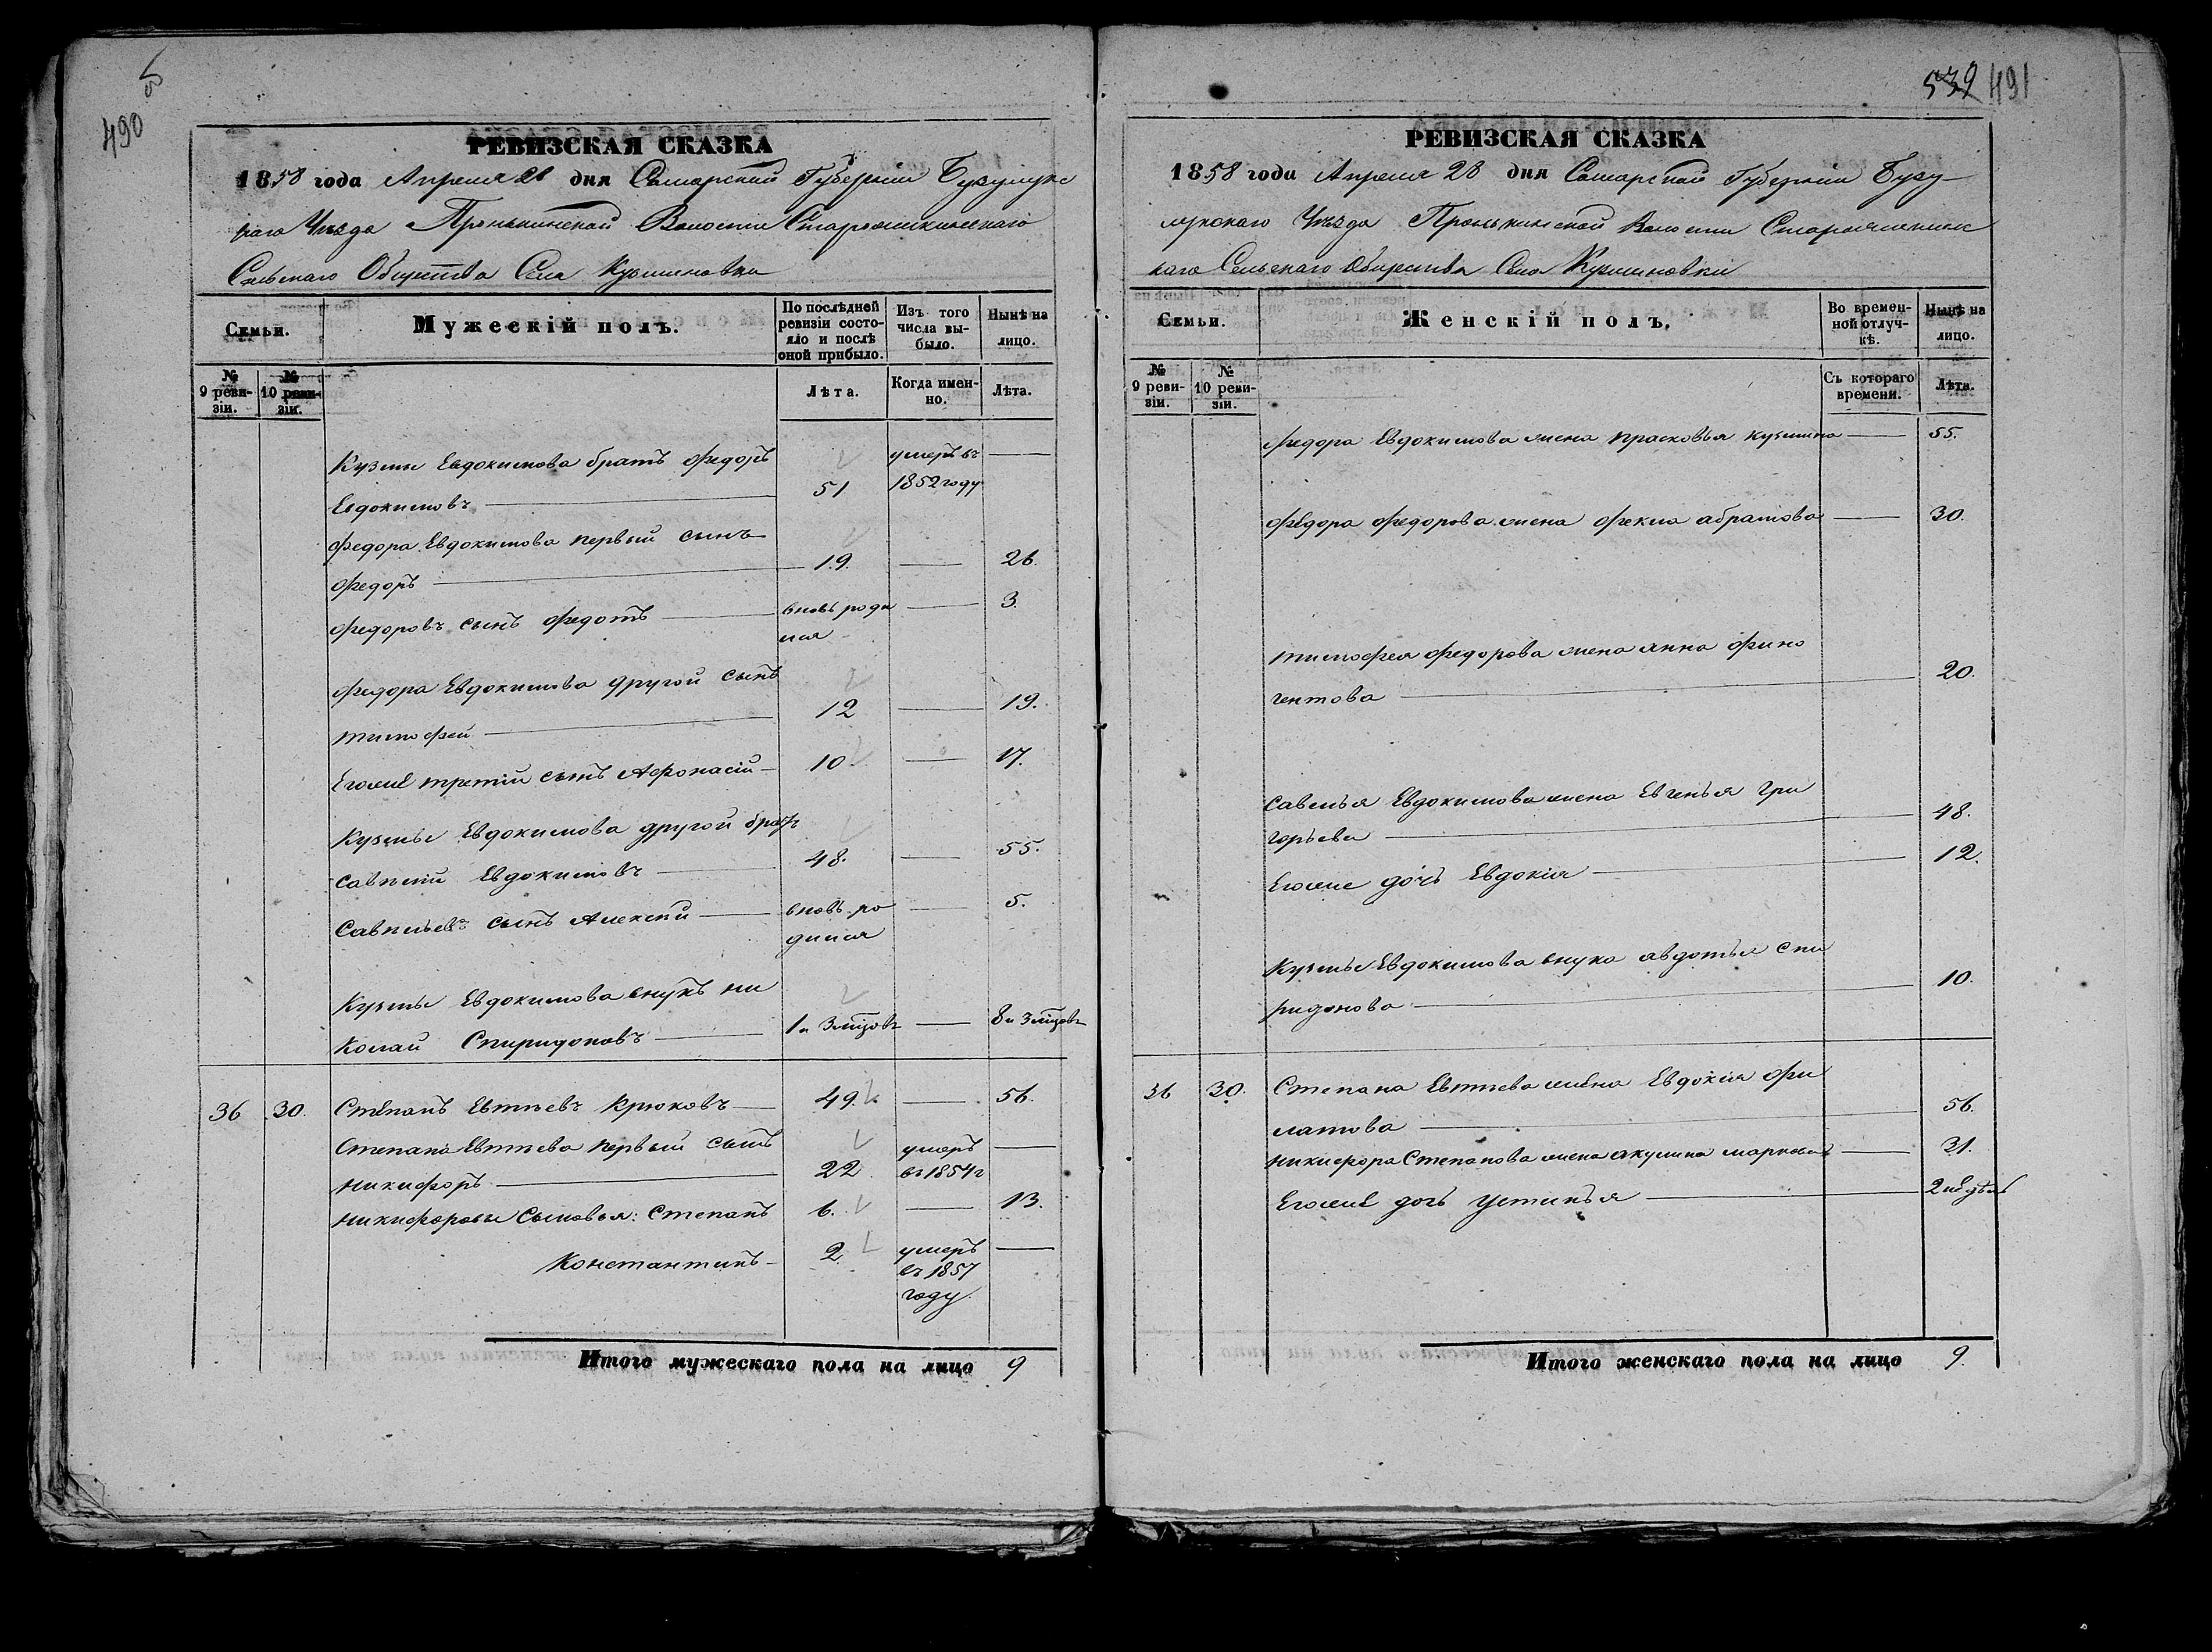 490
РЕВИЗСКАЯ СКАЗКА
1858 года Апреля 28 дня Самарской Губерніи Бузулукс
каго Уѣзда Пронькинской Волости
Сельскаго Общества Села Кузминовки
Семьи.
Мужескій полъ.
По послѣдней ревизіи состояло и послѣ оной прибыло.
Изъ того числа выбыло.
Нынѣ на лицо.
№ 9 ревизіи.
№ 10 ревизіи.
Лѣта.
Когда именно.
Лѣта.
Кузмы Евдокимова братъ Федоръ умеръ въ —
Евдокимовъ — 51 1852 году
Федора Евдокимова первый сынъ
Федоръ — 19. — 26.
Федоровъ сынъ Федотъ — вновь роди — 3.
лся
Федора Евдокимова другой сынъ
тимофей — 12 — 19.
Егоже третій сынъ Афонасій — 10 — 17.
Кузмы Евдокимова другой братъ
Савѣлій Евдокимовъ — 48. — 55.
Савѣльевъ сынъ Алексѣй — вновь ро — 5.
дился
Кузмы Евдокимова внукъ ни
колай Спиридоновъ — 1 и 3 мѣцовъ — 8 и 3 мѣцовъ
36 30. Степанъ Евтѣевъ Крюковъ — 49. — 56.
Степана Евтѣева первый сынъ умеръ —
никифоръ — 22 въ 1854 г
никифоровы Сыновья: Степанъ 6. — 13.
Константинъ — 2. умеръ —
въ 1857
году.
Итого мужескаго пола на лицо 9
539 491
РЕВИЗСКАЯ СКАЗКА
1858 года Апреля 28 дня Самарской Губерніи Бузу
лукскаго Уѣзда Пронькинской Волости
каго Сельскаго Общества Села Кузминовки
Семьи.
Женскій полъ.
Во временной отлучкѣ.
Нынѣ на лицо.
№ 9 ревизіи.
№ 10 ревизіи.
Съ котораго времени.
Лѣта.
Федора Евдокимова жена Прасковья кузмина — 55.
Федора Федорова жена Фекла абрамова — 30.
тимофея Федорова жена анна Фино
гентова — 20.
Савелья Евдокимова жена Евгенья Гри
горьева — 48.
Егоже дочь Евдокія — 12.
Кузмы Евдокимова внука авдотья Спи
ридонова — 10.
36 30. Степана Евтѣева жена Евдокія Фи
латова — 56.
никифора Степанова жена акулина маркова — 31.
Егоже дочь Устинья — 2 недѣль
Итого женскаго пола на лицо 9.